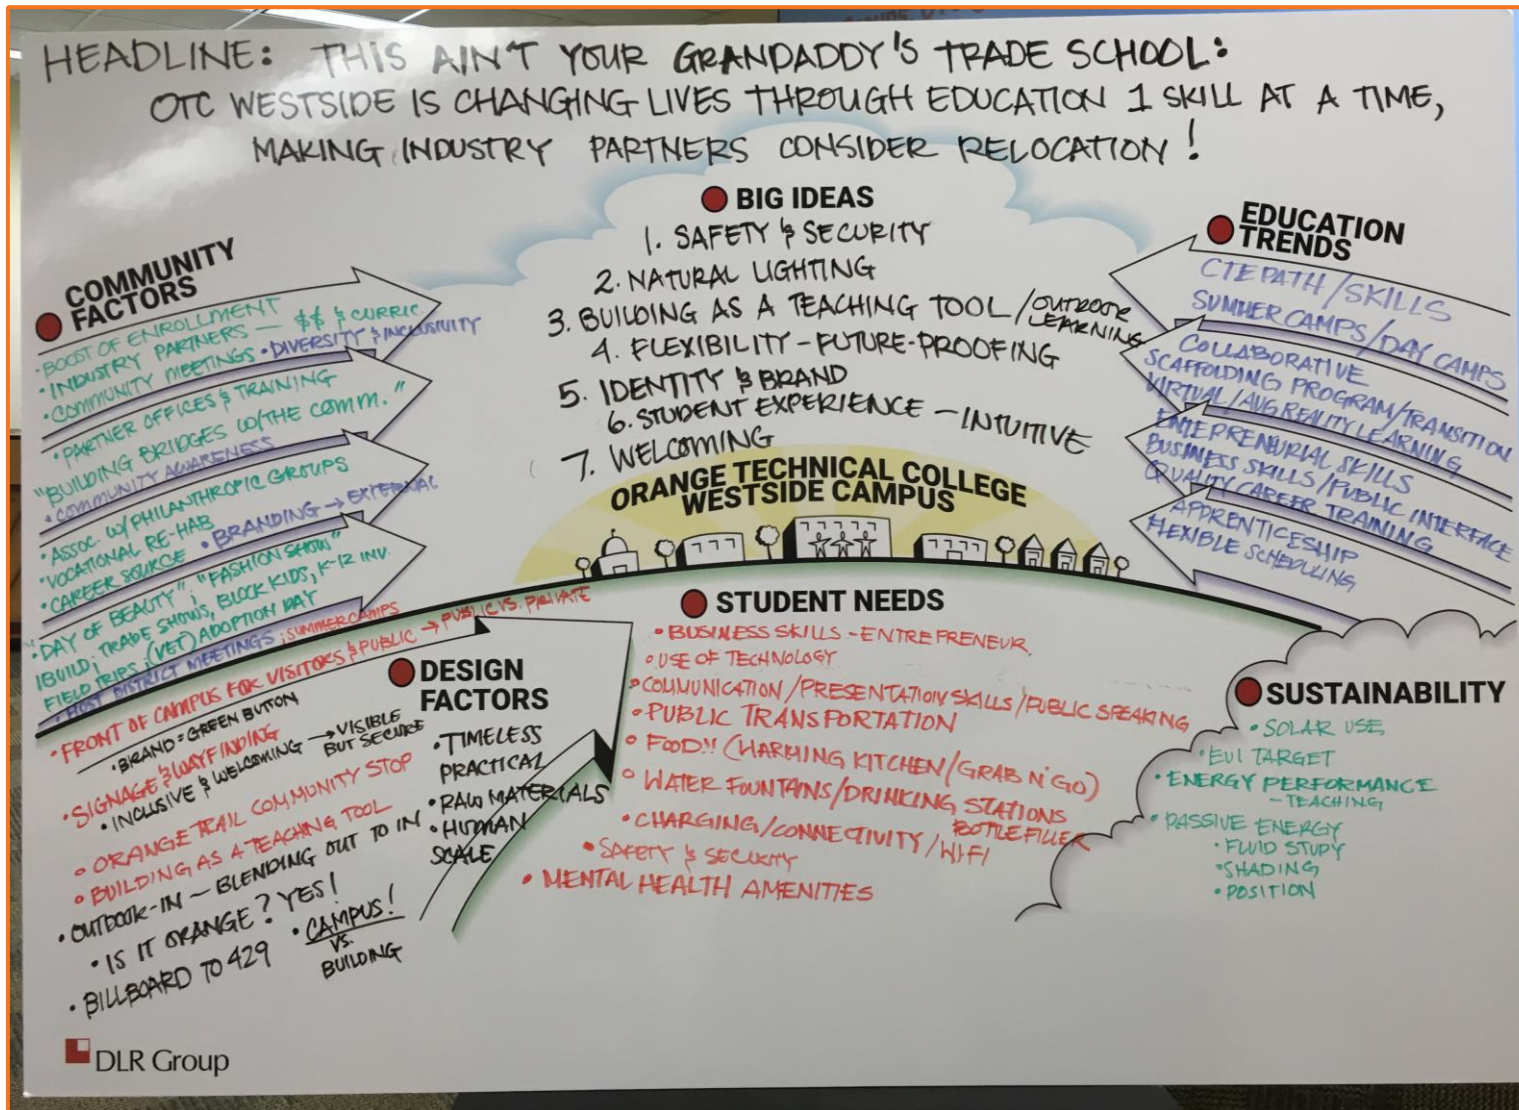 HEADLINE: THIS AIN'T YOUR GRANDADDY'S TRADE SCHOOL:
OTC WESTSIDE IS CHANGING LIVES THROUGH EDUCATION 1 SKILL AT A TIME,
MAKING INDUSTRY PARTNERS CONSIDER RELOCATION!
BIG IDEAS
1. SAFETY & SECURITY
2. NATURAL LIGHTING
3. BUILDING AS A TEACHING TOOL / OUTDOOR
LEARNING
4. FLEXIBILITY - FUTURE-PROOFING
5. IDENTITY & BRAND
6. STUDENT EXPERIENCE - INTUITIVE
7. WELCOMING
COMMUNITY
FACTORS
• BOOST OF ENROLLMENT
• INDUSTRY PARTNERS - $$ & CURRIC.
• COMMUNITY MEETINGS • DIVERSITY & INCLUSIVITY
• PARTNER OFFICES & TRAINING
"BUILDING BRIDGES W/THE COMM."
• COMMUNITY AWARENESS
• ASSOC. W/ PHILANTHROPIC GROUPS
• VOCATIONAL RE-HAB
• CAREER SOURCE • BRANDING → EXTERNAL
• "DAY OF BEAUTY"; "FASHION SHOW"
IBUILD; TRADE SHOWS, BLOCK KIDS, K-12 INV.
FIELD TRIPS; (VET) ADOPTION DAY
• HOST DISTRICT MEETINGS; SUMMER CAMPS
EDUCATION
TRENDS
CTE PATH / SKILLS
SUMMER CAMPS / DAY CAMPS
COLLABORATIVE
SCAFFOLDING PROGRAM/TRANSITION
VIRTUAL/AUG REALITY LEARNING
ENTEPRENEURIAL SKILLS
BUSINESS SKILLS/PUBLIC INTERFACE
QUALITY CAREER TRAINING
APPRENTICESHIP
FLEXIBLE SCHEDULING
ORANGE TECHNICAL COLLEGE
WESTSIDE CAMPUS
DESIGN
FACTORS
• FRONT OF CAMPUS FOR VISITORS & PUBLIC → PUBLIC VS. PRIVATE
• BRAND = GREEN BUTTON
• SIGNAGE & WAYFINDING
• INCLUSIVE & WELCOMING → VISIBLE
BUT SECURE
• ORANGE TRAIL COMMUNITY STOP
• BUILDING AS A TEACHING TOOL
• OUTDOOR-IN - BLENDING OUT TO IN
• IS IT ORANGE? YES!
• BILLBOARD TO 429
• CAMPUS!
VS.
BUILDING
• TIMELESS
PRACTICAL
• RAW MATERIALS
• HUMAN
SCALE
STUDENT NEEDS
• BUSINESS SKILLS - ENTREPRENEUR
• USE OF TECHNOLOGY
• COMMUNICATION/PRESENTATION SKILLS/PUBLIC SPEAKING
• PUBLIC TRANSPORTATION
• FOOD!! (WARMING KITCHEN/GRAB N' GO)
• WATER FOUNTAINS/DRINKING STATIONS
BOTTLE FILLER
• CHARGING/CONNECTIVITY/WIFI
• SAFETY & SECURITY
• MENTAL HEALTH AMENITIES
SUSTAINABILITY
• SOLAR USE
• EUI TARGET
• ENERGY PERFORMANCE
- TEACHING
• PASSIVE ENERGY
• FLUID STUDY
• SHADING
• POSITION
DLR Group